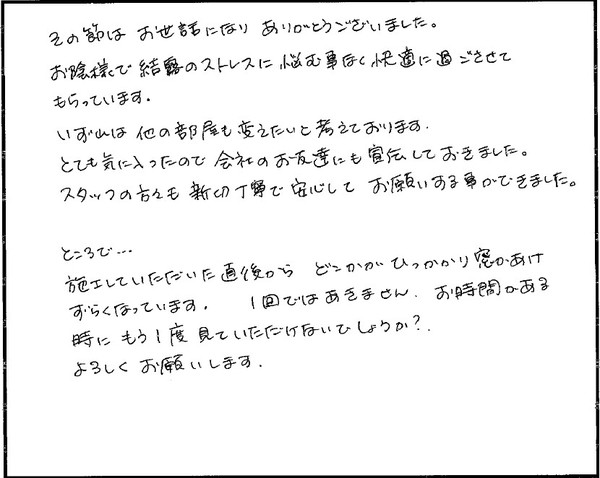 その節は お世話になり ありがとうございました。
お陰様で 結露のストレスに 悩む事なく 快適に過ごさせて
もらっています。
いずれは 他の部屋も 変えたいと 考えております.
とても気に入ったので 会社のお友達にも 宣伝しておきました。
スタッフの方々も 親切丁寧で 安心して お願いする事ができました。
ところで…
施工していただいた 直後から どこかが ひっかかり 窓があけ
ずらくなっています. 1回ではあきません. お時間がある
時に もう1度 見ていただけないでしょうか?.
よろしく お願いします.